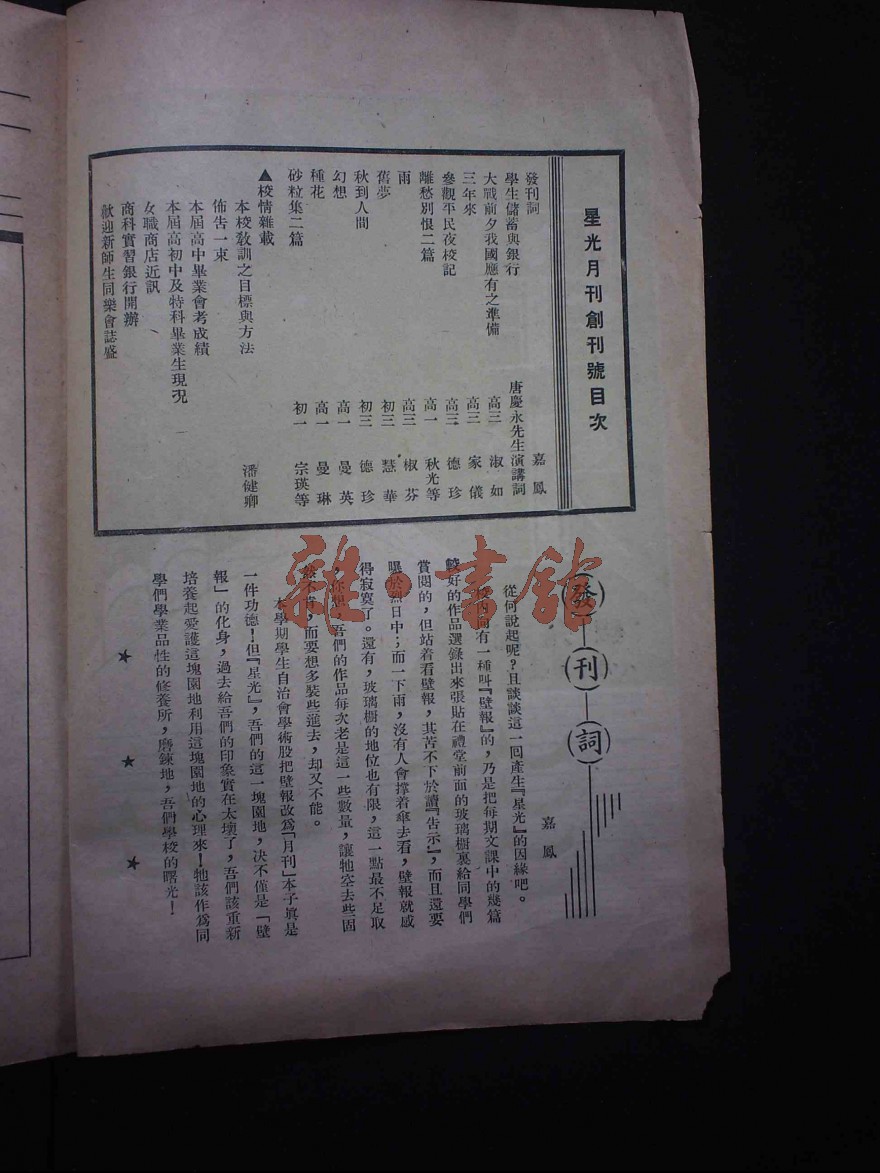 星光月刊創刊號目次
發刊詞 嘉鳳
學生儲蓄與銀行 唐慶永先生演講詞
大戰前夕我國應有之準備 高三 淑如
三年來 高三 家儀
參觀平民夜校記 高三 德珍
離愁別恨二篇 高一 秋光等
雨 高三 椒芬
舊夢 初三 慧華
秋到人間 初三 德珍
幻想 高一 曼英
種花 高一 曼琳
砂粒集二篇 初一 宗瑛等
▲校情雜載
本校教訓之目標與方法 潘健卿
佈告一束
本屆高中畢業會考成績
本屆高初中及特科畢業生現況
女職商店近訊
商科實習銀行開辦
歡迎新師生同樂會誌盛
發刊詞
嘉鳳
從何說起呢?且談談這一回產生『星光』的因緣吧。
校內向有一種叫『壁報』的,乃是把每期文課中的幾篇
較好的作品選錄出來張貼在禮堂前面的玻璃櫥裏給同學們
賞閱的,但站着看壁報,其苦不下於讀『告示』,而且還要
曝於烈日中;而一下雨,沒有人會撑着傘去看,壁報就感
得寂寞了。還有,玻璃櫥的地位也有限,這一點最不足取
,你想,吾們的作品每次老是這一些數量,讓牠空去些固
然不肯,而要想多裝些進去,却又不能。
本學期學生自治會學術股把壁報改爲『月刊』本子真是
一件功德!但『星光』,吾們的這一塊園地,決不僅是「壁
報」的化身,過去給吾們的印象實在太壞了,吾們該重新
培養起愛護這塊園地利用這塊園地的心理來!牠該作爲同
學們學業品性的修養所,磨鍊地,吾們學校的曙光!
★ ★ ★
雜·書館